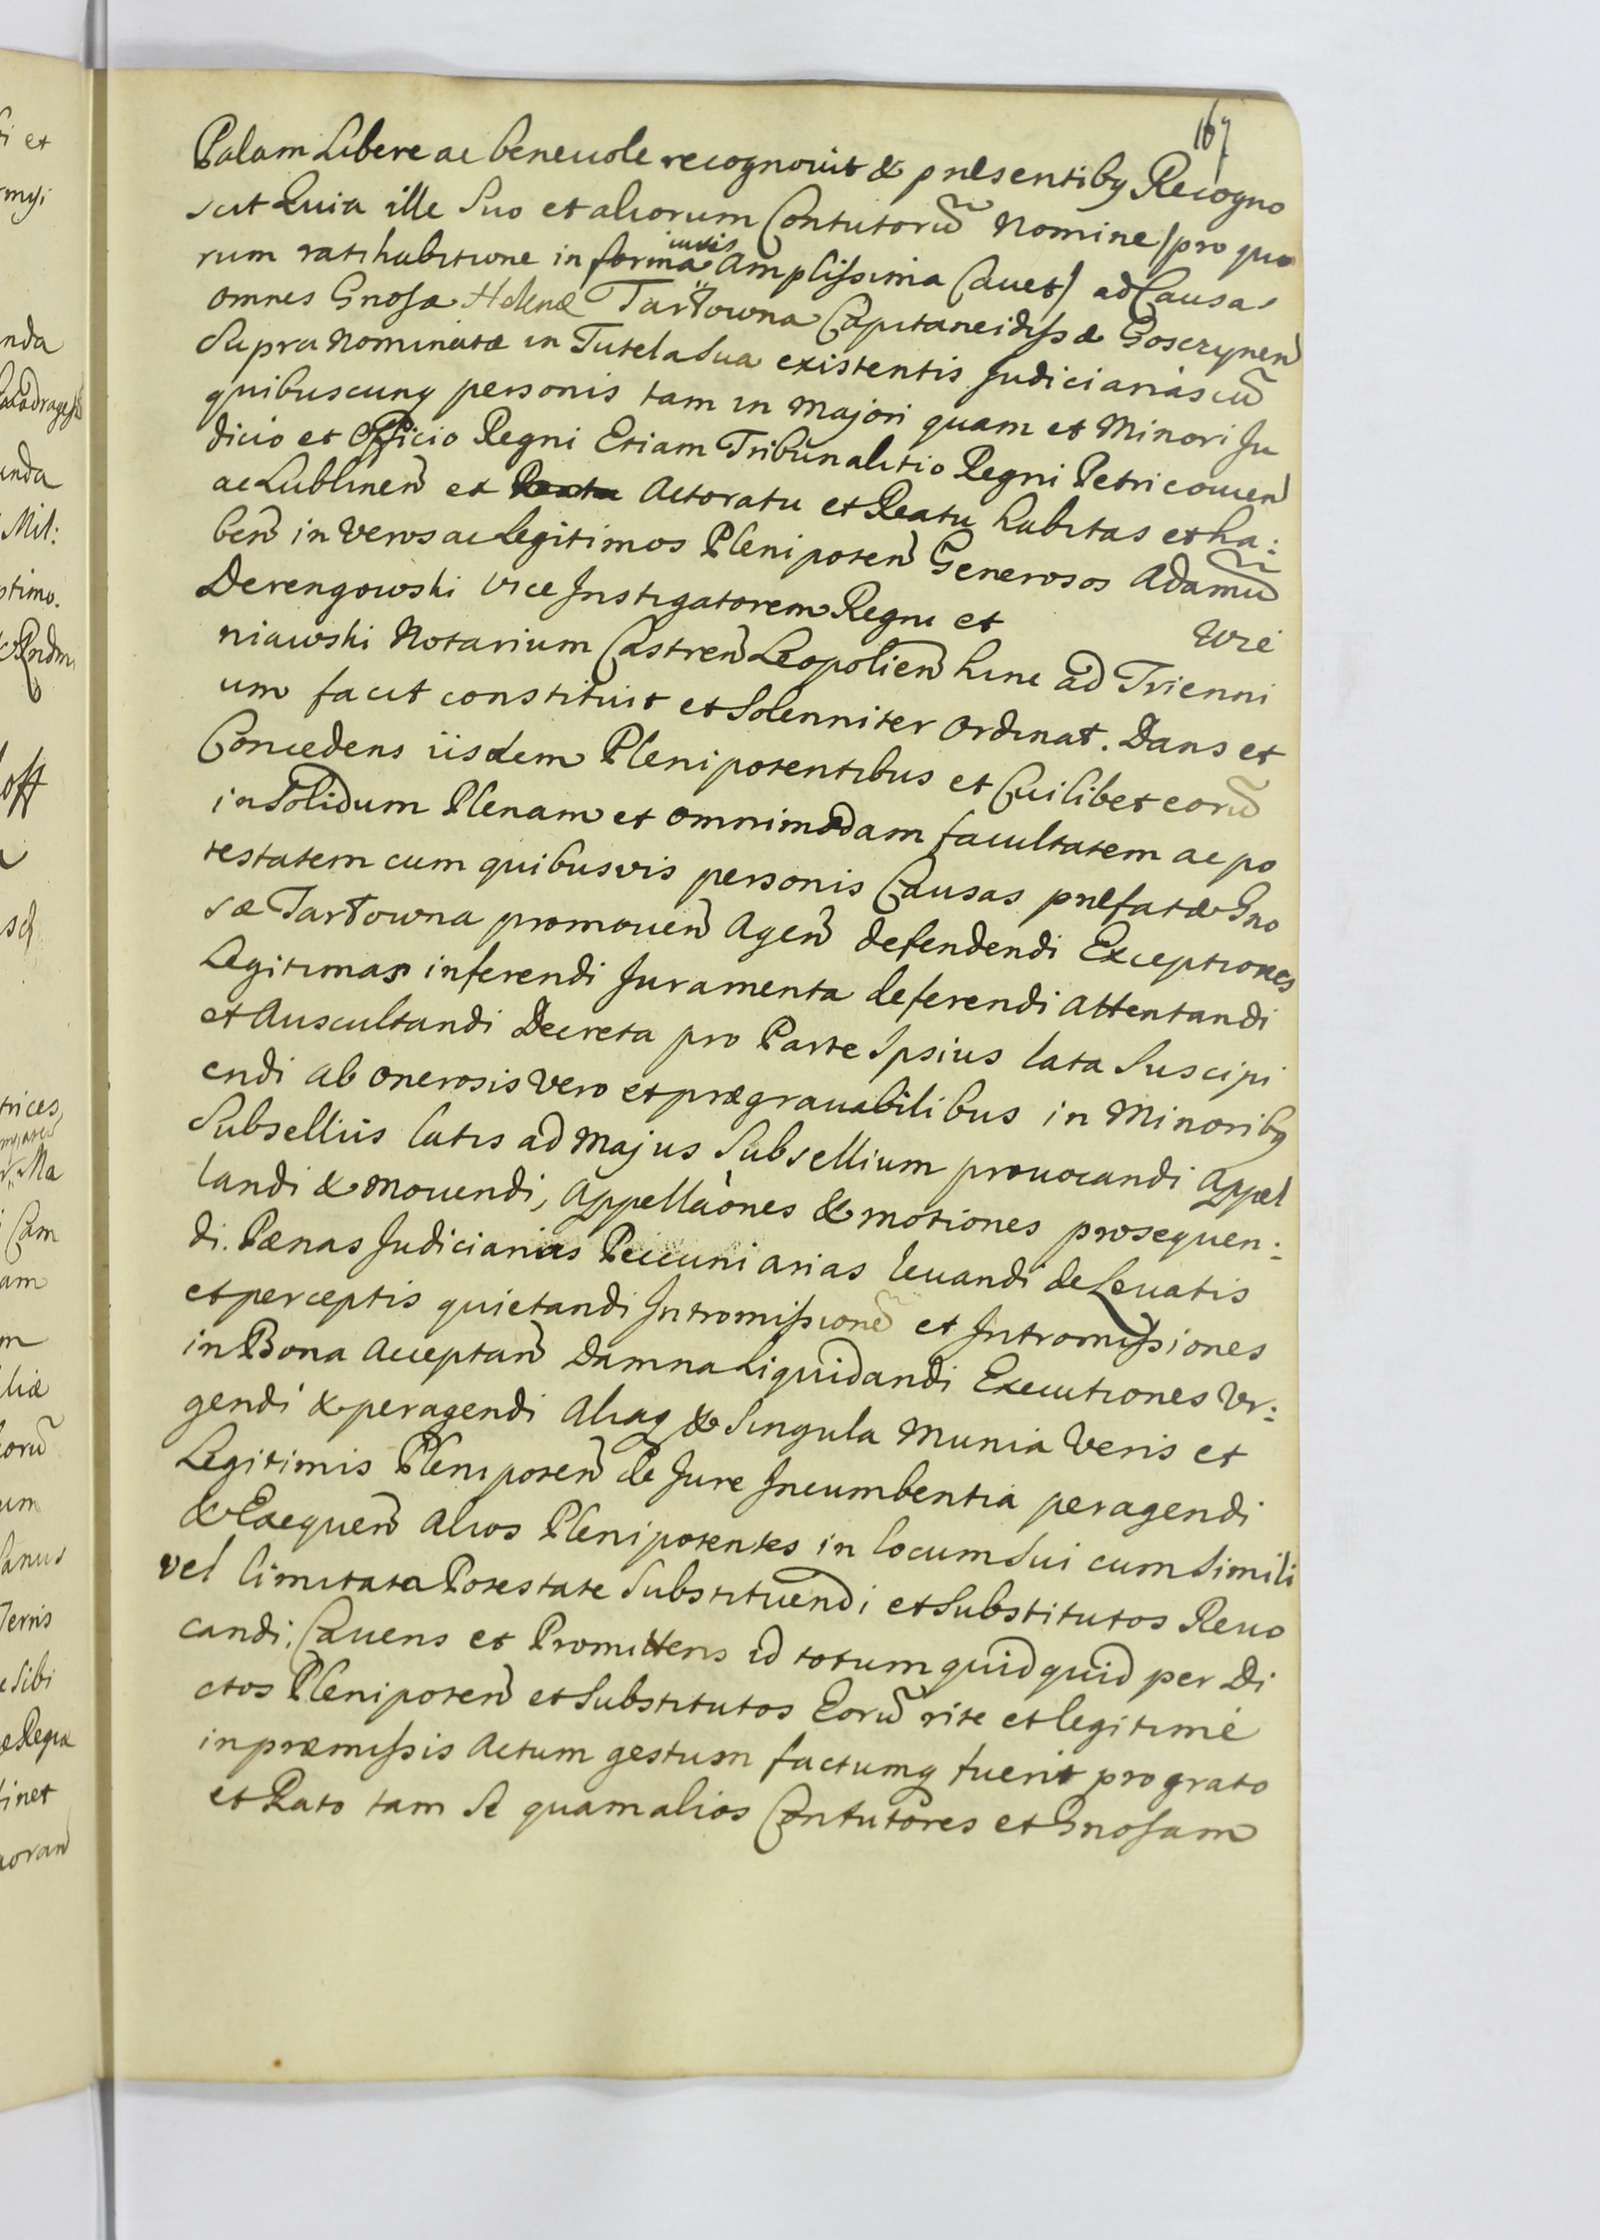 167
Palam Libere ac beneuole recognouit & præsentibq Recogno
scit Quia ille Suo et aliorum Contutorũ Nomine /pro quo
rum ratihabitione in forma iuris Amplissima Cauet/ ad Causas
omnes Gnosæ Helenæ Tarłowna Capitaneidissæ Gosczynen
Supra Nominatæ in Tutela Sua existentis Judiciarias cũ
quibuscunq personis tam in Majori quam et Minori Ju
dicio et Officio Regni Etiam Tribunalitio Regni Petricouien
ac Lublinen et Actoratu et Reatu habitas et ha:
ben in Veros ac Legitimos Plenipoten Generosos Adamũ
Derengowski Vice Instigatorem Regni et Wie
niawski Notarium Castren Leopolien hinc ad Trienni
um facit constituit et Solenniter Ordinat. Dans et
Concedens iisdem Plenipotentibus et Cuilibet eorũ
in Solidum Plenam et omnimodam facultatem ac po
testatem cum quibusvis personis Causas præfatæ Gno
sæ Tarłowna promouen Agen defendendi Exceptiones
Legitimas inferendi Juramenta deferendi attentandi
et Auscultandi Decreta pro Parte Ipsius lata Suscipi
endi ab onerosis Vero et prægrauabilibus in Minoribq
Subselliis latis ad Majus Subsellium prouocandi Appel
landi & mouendi, Appellaones & motiones prosequen:
di. Pænas Judiciarias Peccuniarias leuandi de Leuatis
et perceptis quietandi Intromissionẽ et Intromissiones
in Bona Acceptan Damna Liquidandi Executiones Vr:
gendi & peragendi Aliaq & Singula Munia Veris et
Legitimis Plenipoten de Jure Incumbentia peragendi
& Exequen Alios Plenipotentes in locum Sui cum Simili
vel limitata Potestate Substituendi et Substitutos Reuo
candi. Cauens et Promittens id totum quidquid per Di
ctos Plenipoten et Substitutos Eorũ rite et legitimè
in præmissis Actum gestum factumq fuerit pro grato
et Rato tam Se quam alios Contutores et Gnosam